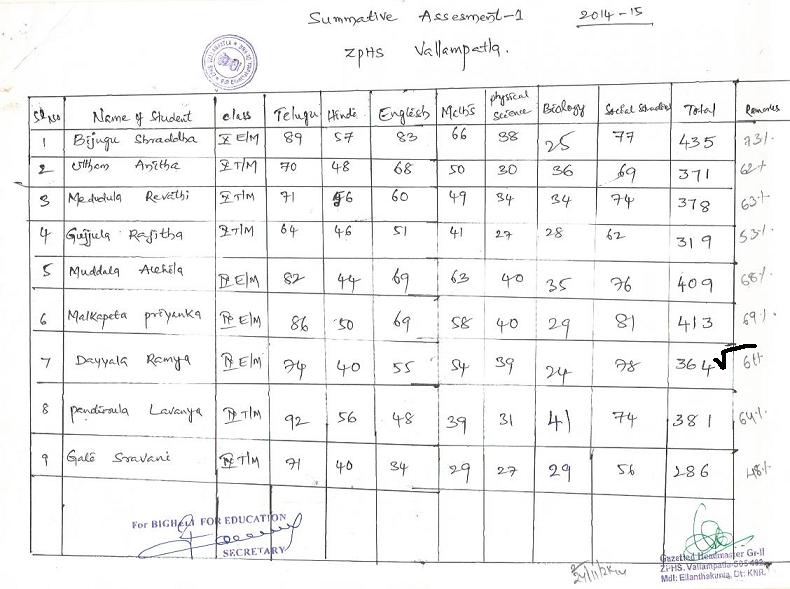 Summative Assesment-1 2014-15
ZPHS Vallampatla.
Sl No Name of Student class Telugu Hindi English Meths physical science Biology Social Studies Total Remarks
1 Bijugu Shraddha X E/M 89 57 83 66 38 25 77 435 73%
2 Anitha X T/M 70 48 68 50 30 36 69 371 62%
3 Medudula Revathi X T/M 71 56 60 49 34 34 74 378 63%
4 Gujjula Rajitha X T/M 64 46 51 41 27 28 62 319 53%
5 Muddala Akhila IX E/M 82 44 69 63 40 35 76 409 68%
6 Malkapeta priyanka IX E/M 86 50 69 58 40 29 81 413 69%
7 Dayyala Ramya IX E/M 74 40 55 54 39 24 78 364 61%
8 Pandirsula Lavanya IX T/M 92 56 48 39 31 41 74 381 64%
9 Gale Sravani IX T/M 71 40 34 29 27 29 56 286 48%
For BIGHELP FOR EDUCATION
SECRETARY
Gazetted Headmaster Gr-II
ZPHS. Vallampatla-505402
Mdl: Ellanthakunta, Dt: KNR.